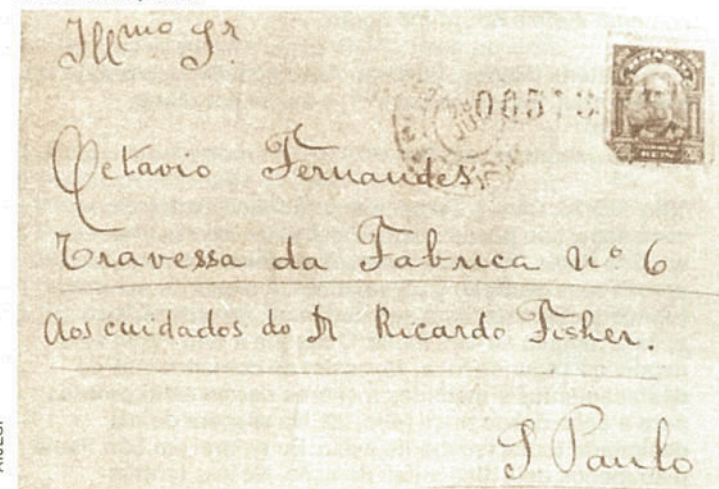 Illmo Sr.
06513
REIS
Octavio Fernandes,
Travessa da Fabrica nº 6
Aos cuidados do Dr Ricardo Fisher.
S Paulo